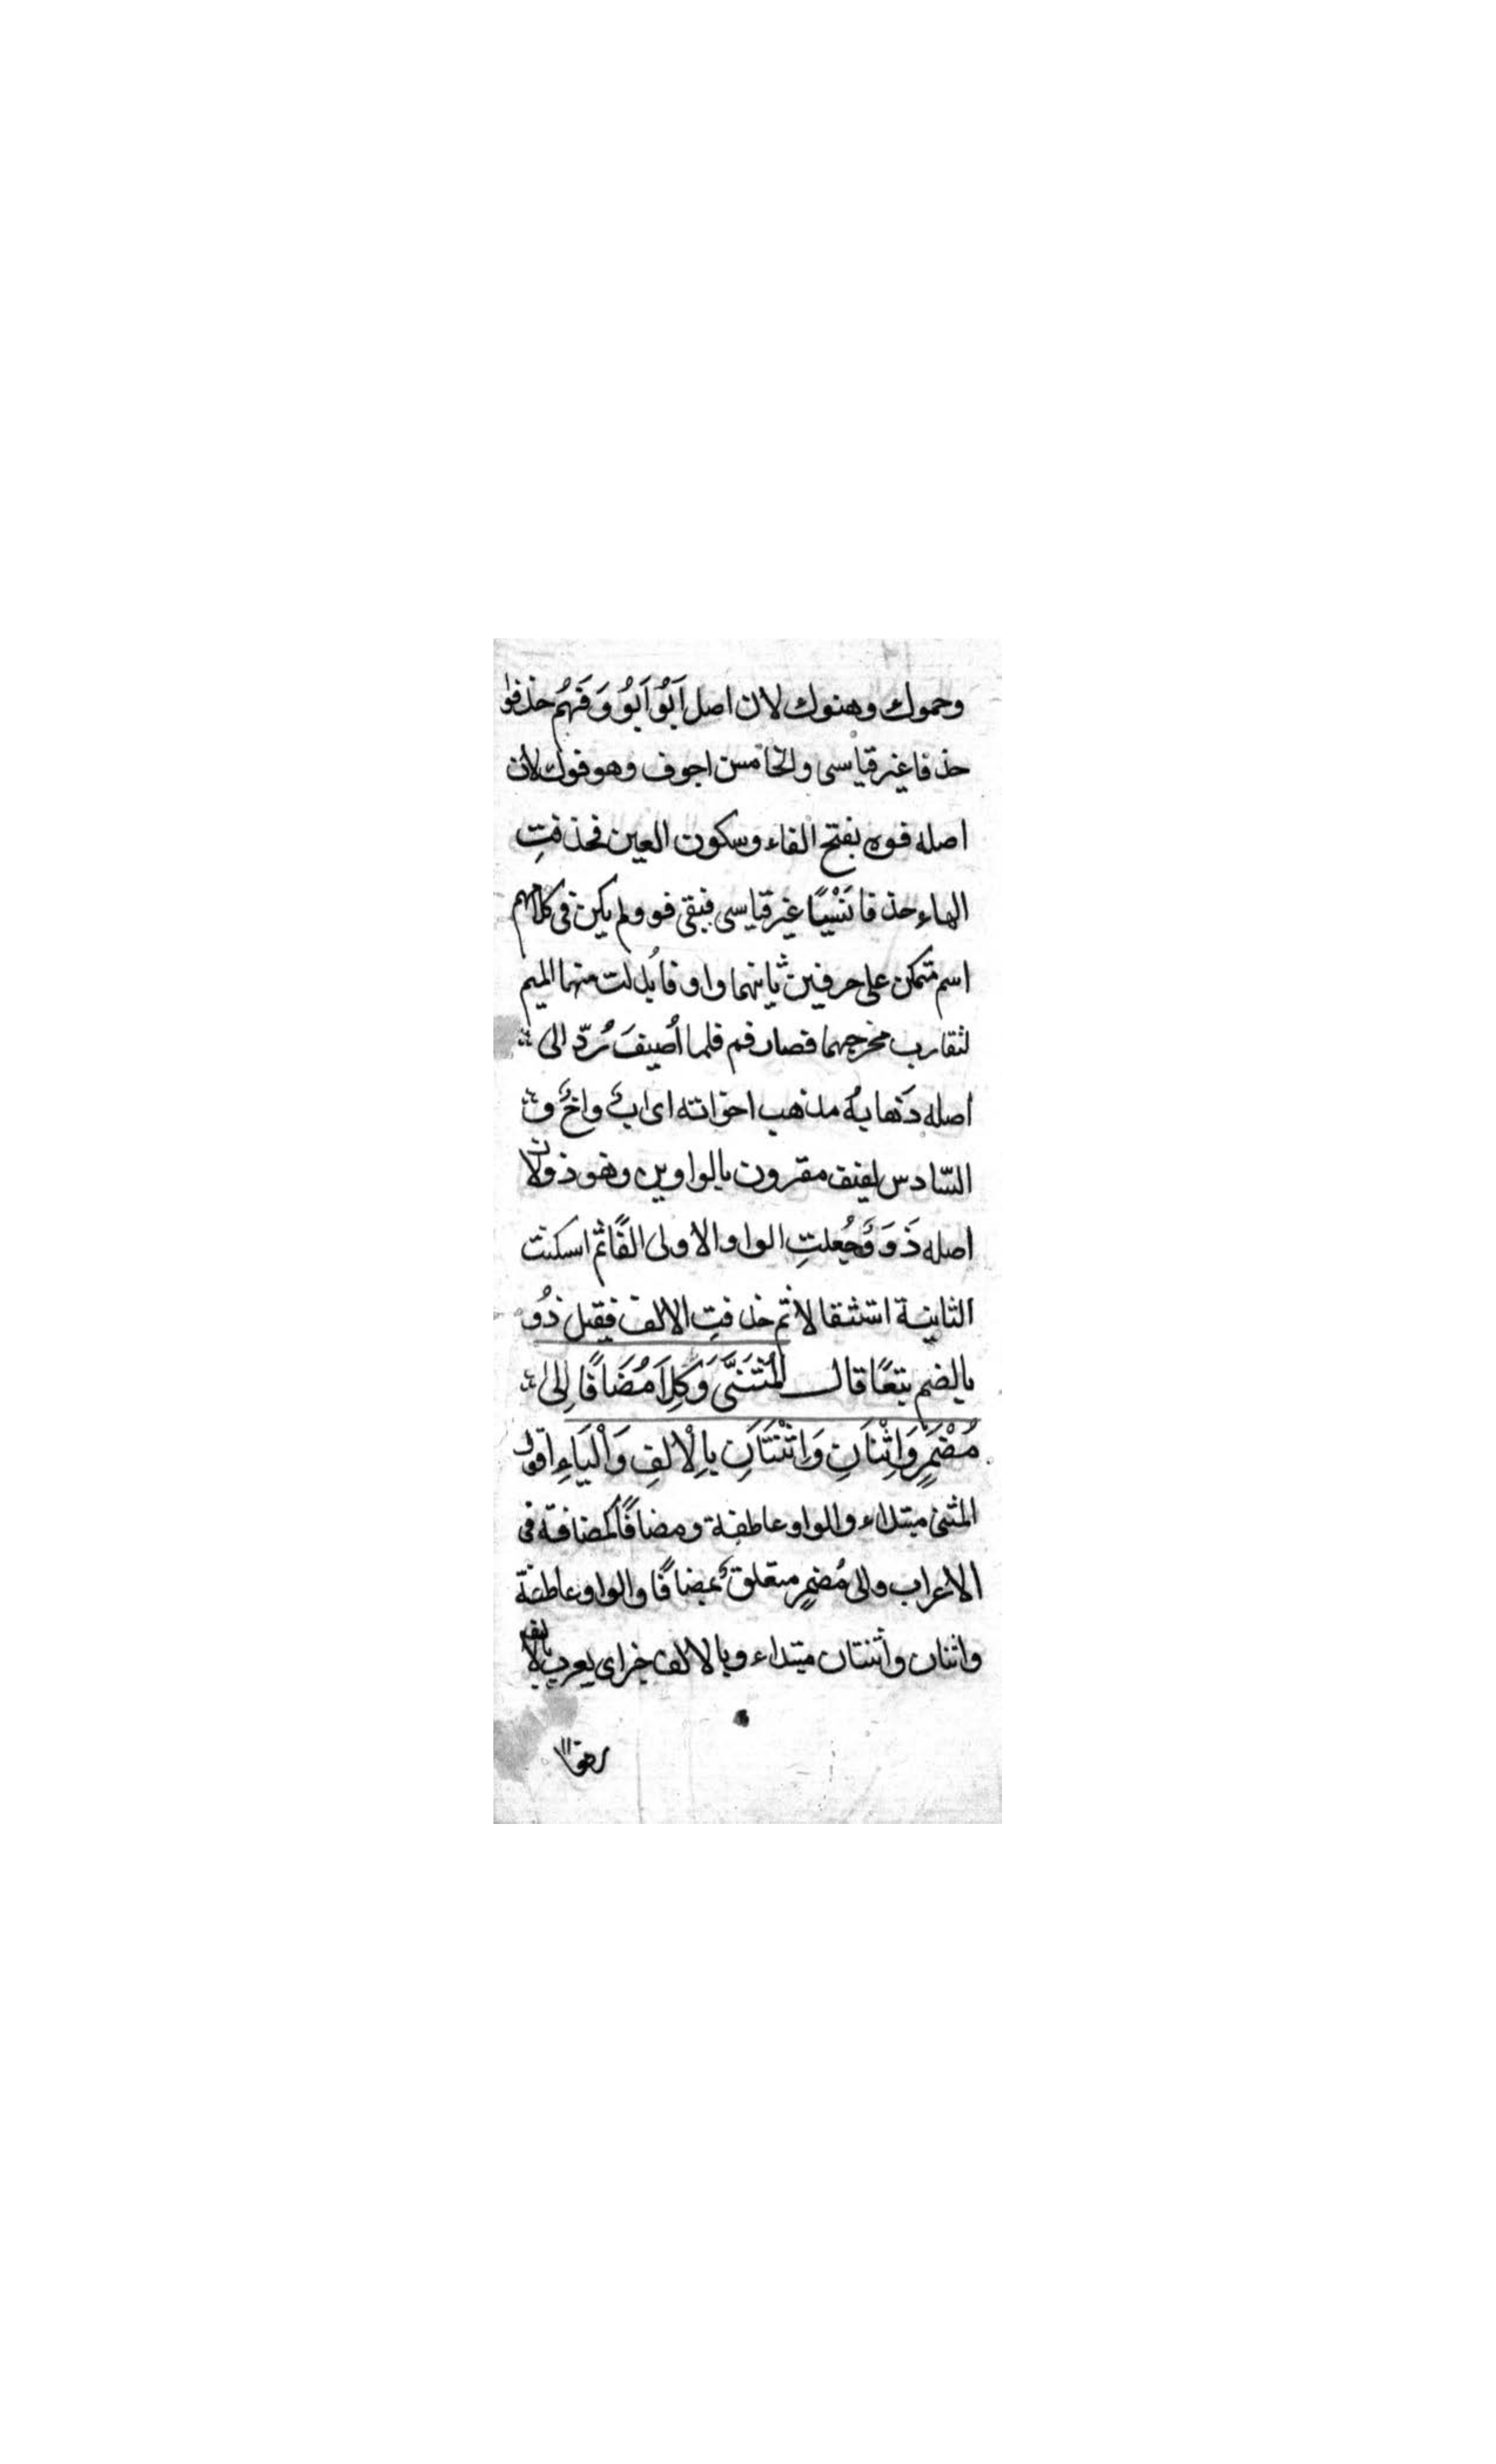 وحموك وهنوك لان اصل اَبُوْ اَبُوُ وَفَهُم حذفوا
حذفا غير قياسى والخامس اجوف وهو فوك لان
اصله فوه بفتح الفاء وسكون العين فحذفتِ
الهاء حذفا نَسْيًا غير قياسى فبقى فو ولم يكن فى كلامهم
اسم متمكن على حرفين ثانيهما واو فاُبدلت منها الميم
لتقارب مخرجهما فصار فم فلما اُضيفَ رُدّ الى
اصله ذهابًا مذهب اخواته اى ابٌ واخٌ و
السّادس لفيف مقرون بالواوين وهو ذو لان
اصله ذَوَوَ فجُعلتِ الواو الاولى الفًا ثم اسكنت
الثانية استثقالا ثم حذفتِ الالف فيقيل ذُو
بالضم تبعًا قال المُثَنَّى وَكِلَا مُضَافًا اِلى
مُضْمَرٍ وَاِثْنَانِ وَاِثْنَتَانِ بِالْاَلِفِ وَالْيَاءِ اقول
المثنى مبتداء والواو عاطفة ومضافًا كمضافة فى
الاعراب والى مُضمرٍ متعلق بمضافًا والواو عاطفة
واثنان واثنتان مبتداء وبالالف خبر اى يعرب بالالف